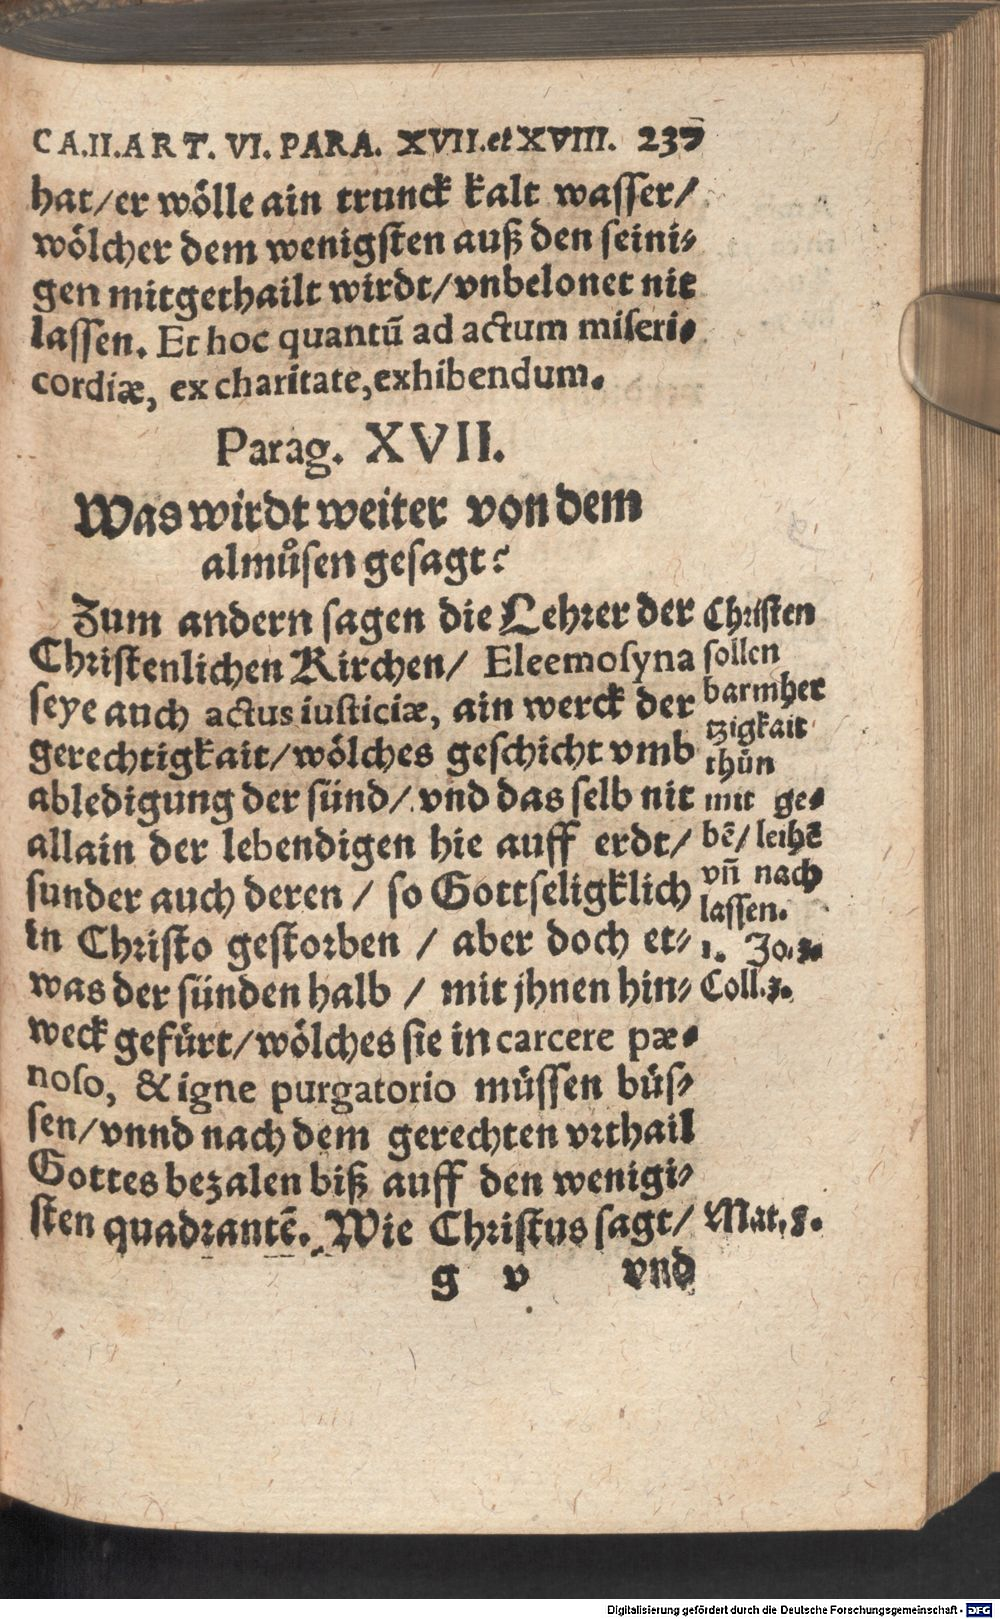 CA.II.ART. VI. PARA. XVII.et XVIII. 237
hat/er wölle ain trunck kalt wasser/
wölcher dem wenigsten auß den seini⸗
gen mitgethailt wirdt/vnbelonet nit
lassen. Et hoc quantū ad actum miseri-
cordiæ, ex charitate,exhibendum.
Parag. XVII.
Was wirdt weiter von dem
almůsen gesagt?
Zum andern sagen die Lehrer der
Christenlichen Kirchen/ Eleemosyna
seye auch actus iusticiæ, ain werck der
gerechtigkait/wölches geschicht vmb
abledigung der sünd/ vnd das selb nit
allain der lebendigen hie auff erdt/
sunder auch deren / so Gottseligklich
in Christo gestorben / aber doch et⸗
was der sünden halb / mit jhnen hin⸗
weck gefürt/wölches sie in carcere pæ-
noso, & igne purgatorio müssen büs⸗
sen/vnnd nach dem gerechten vrthail
Gottes bezalen biß auff den wenigi⸗
sten quadrantē. Wie Christus sagt/
g v vnd
Christen
sollen
barmher
tzigkait
thün
mit ge-
bē/ leihē
vn̄ nach
lassen.
1. Jo. 3.
Coll.3.
Mat. 5.
Digitalisierung gefördert durch die Deutsche Forschungsgemeinschaft - DFG